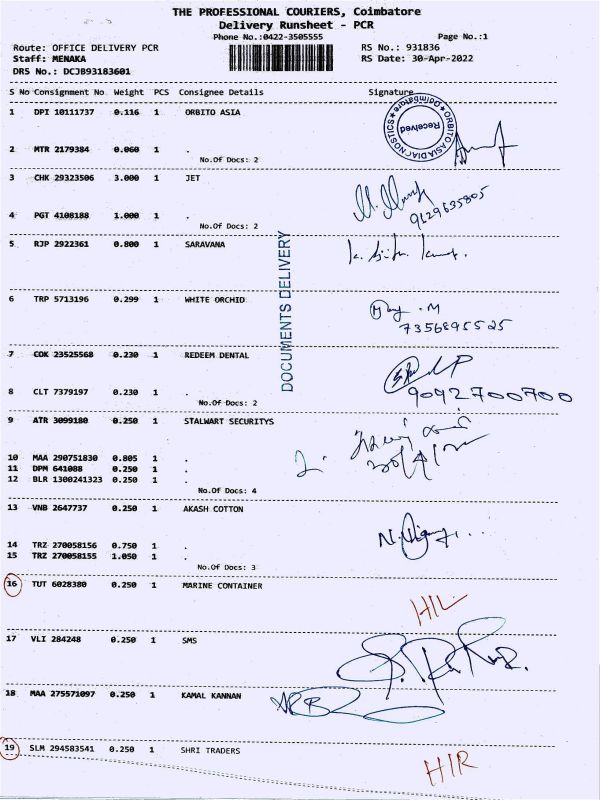 THE PROFESSIONAL COURIERS, Coimbatore
Delivery Runsheet - PCR
Phone No.:0422-3505555 Page No.:1
Route: OFFICE DELIVERY PCR RS No.: 931836
Staff: MENAKA RS Date: 30-Apr-2022
DRS No.: DCJB93183601
S No Consignment No Weight PCS Consignee Details Signature
1 DPI 10111737 0.116 1 ORBITO ASIA
ORBITO ASIA DIAGNOSTICS Coimbatore
Received
2 MTR 2179384 0.060 1 .
No.Of Docs: 2
3 CHK 29323506 3.000 1 JET
9129635805
4 PGT 4108188 1.000 1 .
No.Of Docs: 2
5 RJP 2922361 0.800 1 SARAVANA
DOCUMENTS DELIVERY
6 TRP 5713196 0.299 1 WHITE ORCHID
7356895525
7 COK 23525568 0.230 1 REDEEM DENTAL
8 CLT 7379197 0.230 1 .
9092700700
No.Of Docs: 2
9 ATR 3099180 0.250 1 STALWART SECURITYS
10 MAA 290751830 0.805 1 .
11 DPM 641088 0.250 1 .
12 BLR 1300241323 0.250 1 .
No.Of Docs: 4
13 VNB 2647737 0.250 1 AKASH COTTON
14 TRZ 270058156 0.750 1 .
15 TRZ 270058155 1.050 1 .
No.Of Docs: 3
16 TUT 6028380 0.250 1 MARINE CONTAINER
HIL
17 VLI 284248 0.250 1 SMS
18 MAA 275571097 0.250 1 KAMAL KANNAN
19 SLM 294583541 0.250 1 SHRI TRADERS
HIR